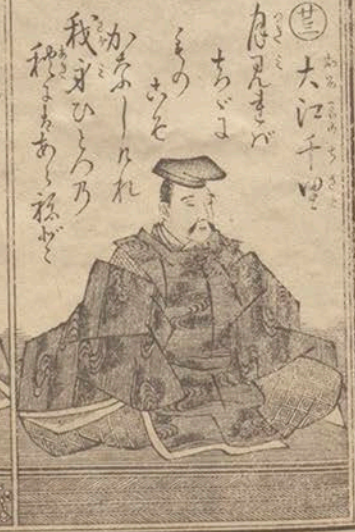 廿三
大江千里
月見れば
ちゞに
ものこそ
かなしけれ
我身ひとつの
秋にはあらねど